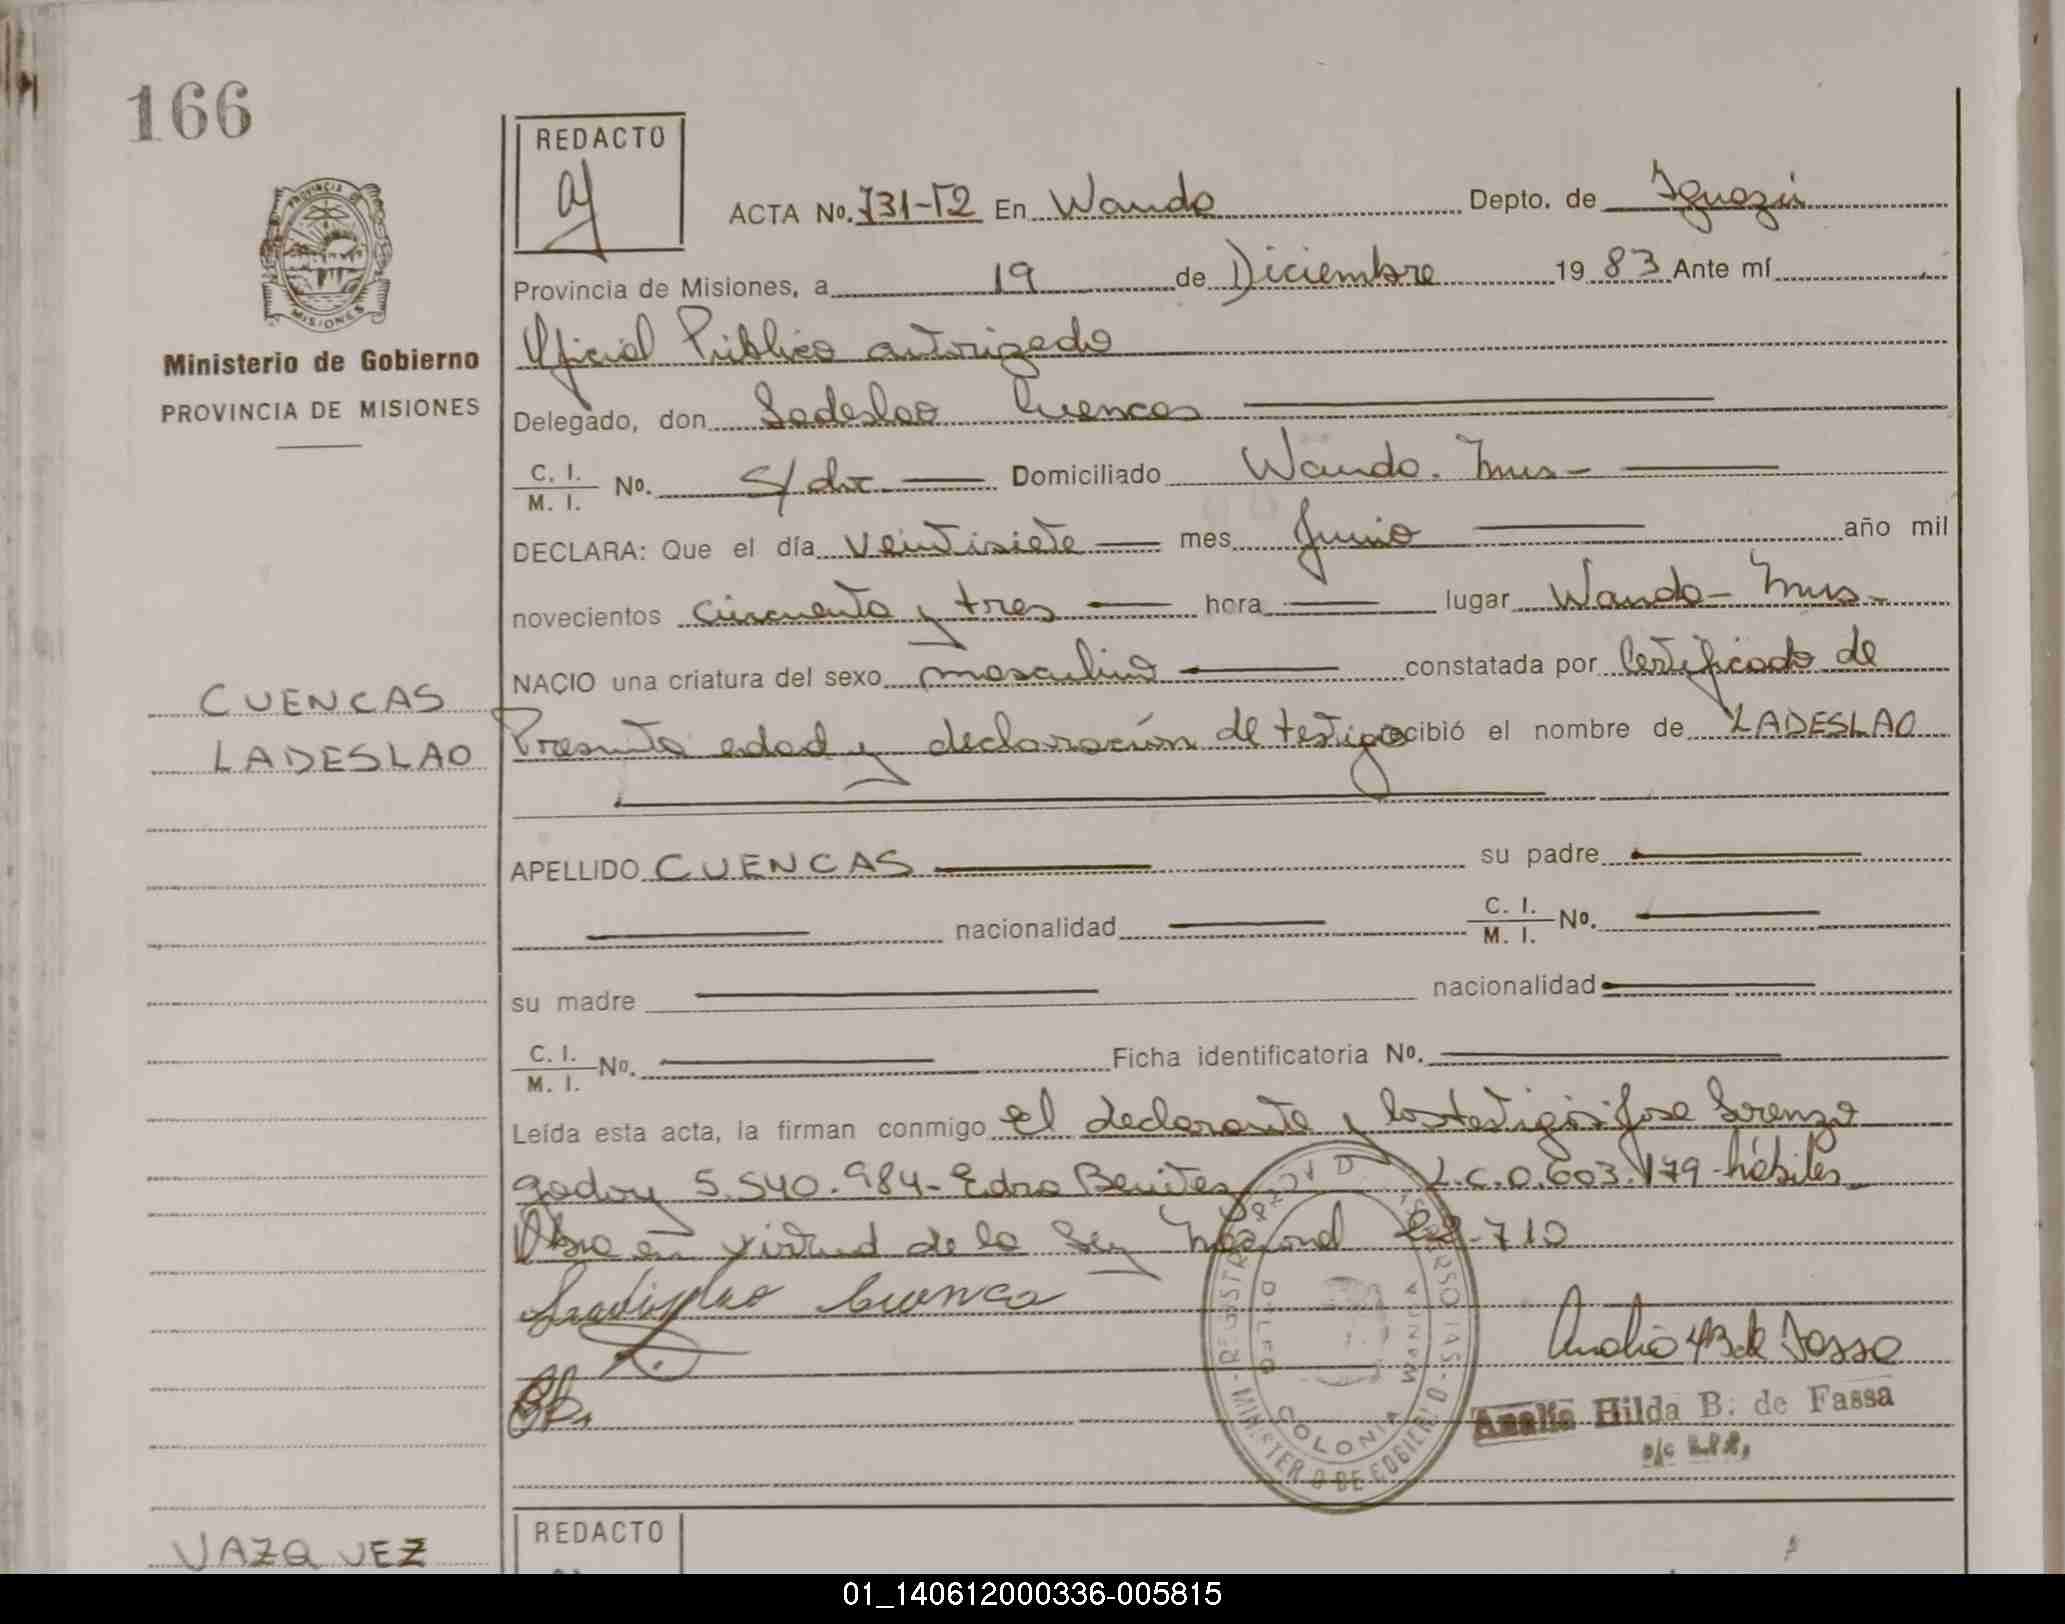 166
REDACTO
ACTA No. 731-T2 En Wanda Depto. de Iguazú
Provincia de Misiones, a 19 de Diciembre 19 83 Ante mí
Oficial Público autorizado
PROVINCIA DE
MISIONES
Ministerio de Gobierno
PROVINCIA DE MISIONES
Delegado, don Ladeslao Cuencas
C. I.
M. I. No. S/doc Domiciliado Wanda. Mnes-
DECLARA: Que el día veintisiete mes Junio año mil
novecientos cincuenta y tres hora lugar Wanda- Mnes-
NACIO una criatura del sexo masculino constatada por Certificado de
CUENCAS
LADESLAO
Presunta edad y declaración de testigo recibió el nombre de LADESLAO
APELLIDO CUENCAS su padre
nacionalidad C. I.
M. I. No.
su madre nacionalidad
C. I.
M. I. No. Ficha identificatoria No.
Leída esta acta, la firman conmigo el declarante y los testigos: Jose Lorenzo
Godoy 5.540.984- Benitez L.C.0.603.179-hábiles
en virtud de la Ley Nacional 22.710
Ladislao Cuenca
COLONIA
Analia Hilda B. de Fassa
VAZQUEZ
REDACTO
01_140612000336-005815